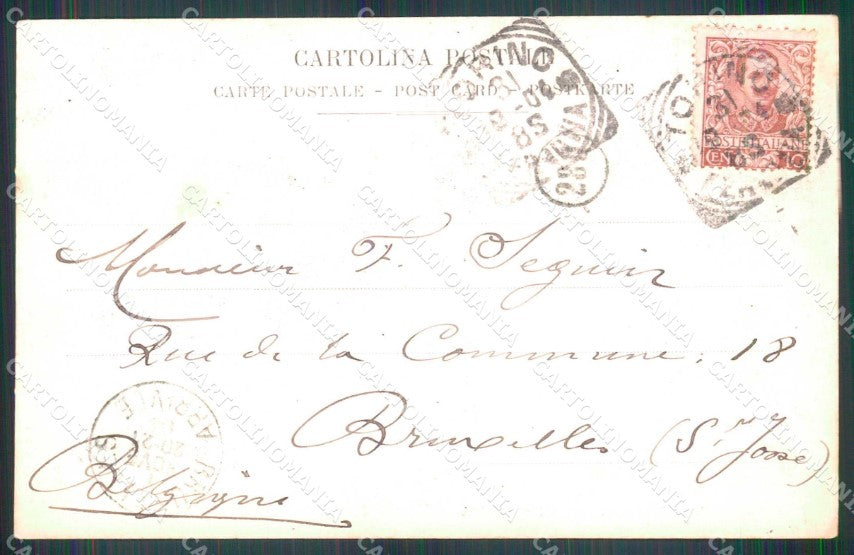 CARTOLINA POSTALE
CARTE POSTALE - POST CARD - POSTKARTE
TORINO
FERROVIA
28
TORINO
POSTE ITALIANE
CENT. 10
Monsieur F. Seguin
Rue de la Commune, 18
Bruxelles (St Josse)
Belgique
ARRIVÉE
CARTOLINOMANIA